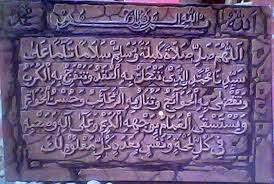 الله محمد
اللهم صل صلاة كاملة وسلم سلاما تاما على
سيدنا محمد الذي تنحل به العقد وتنفرج به الكرب
وتقضى به الحوائج وتنال به الرغائب وحسن الخواتم
ويستسقى الغمام بوجهه الكريم وعلى آله وصحبه
في كل لمحة ونفس بعدد كل معلوم لك